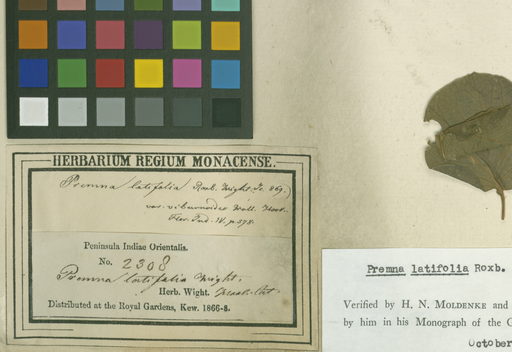 HERBARIUM REGIUM MONACENSE.
Premna latifolia Roxb. Wight. Ic. 869.)
var. viburnoides Wall. Hook.
Flor. Ind. IV, p. 578.
Peninsula Indiae Orientalis.
No. 2308
Premna latifolia Wight.
Herb. Wight.
Distributed at the Royal Gardens, Kew. 1866-8.
Premna latifolia Roxb.
Verified by H. N. MOLDENKE and
by him in his Monograph of the G
October